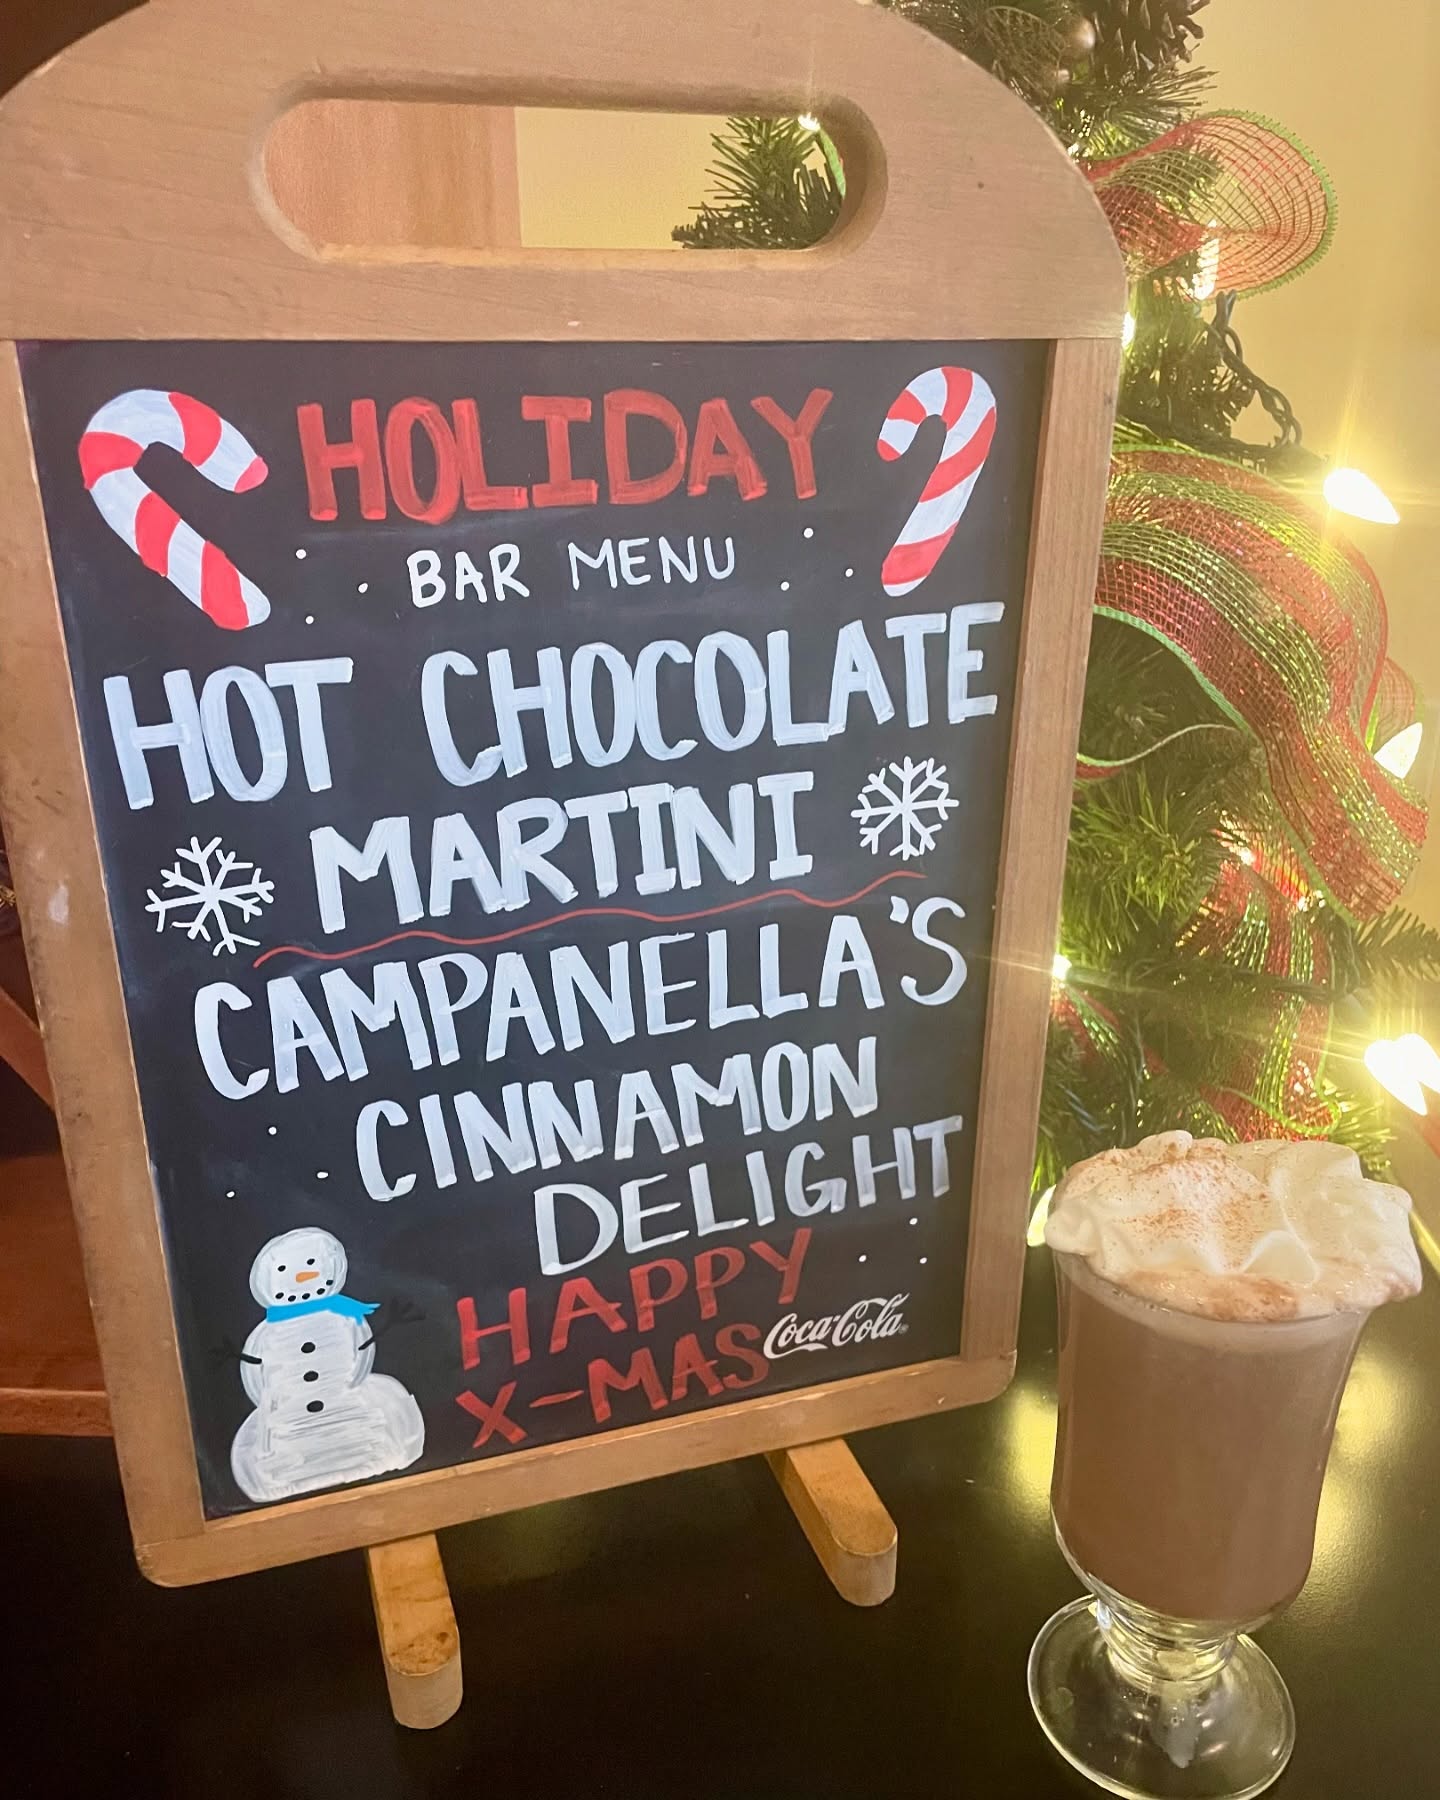 HOLIDAY
BAR MENU
HOT CHOCOLATE
MARTINI
CAMPANELLA'S
CINNAMON
DELIGHT
HAPPY
X-MAS
Coca-Cola